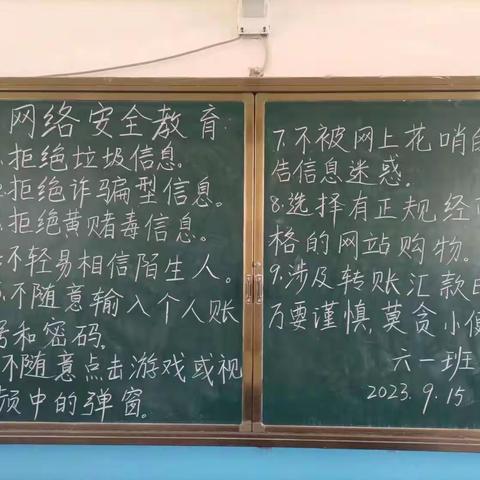 网络安全教育
拒绝垃圾信息。
拒绝诈骗型信息。
拒绝黄赌毒信息。
不轻易相信陌生人。
不随意输入个人账
号和密码。
不随意点击游戏或视
频中的弹窗。
7.不被网上花哨的
告信息迷惑。
8.选择有正规经
格的网站购物。
9.涉及转账汇款
万要谨慎,莫贪小便
六一班
2023.9.15